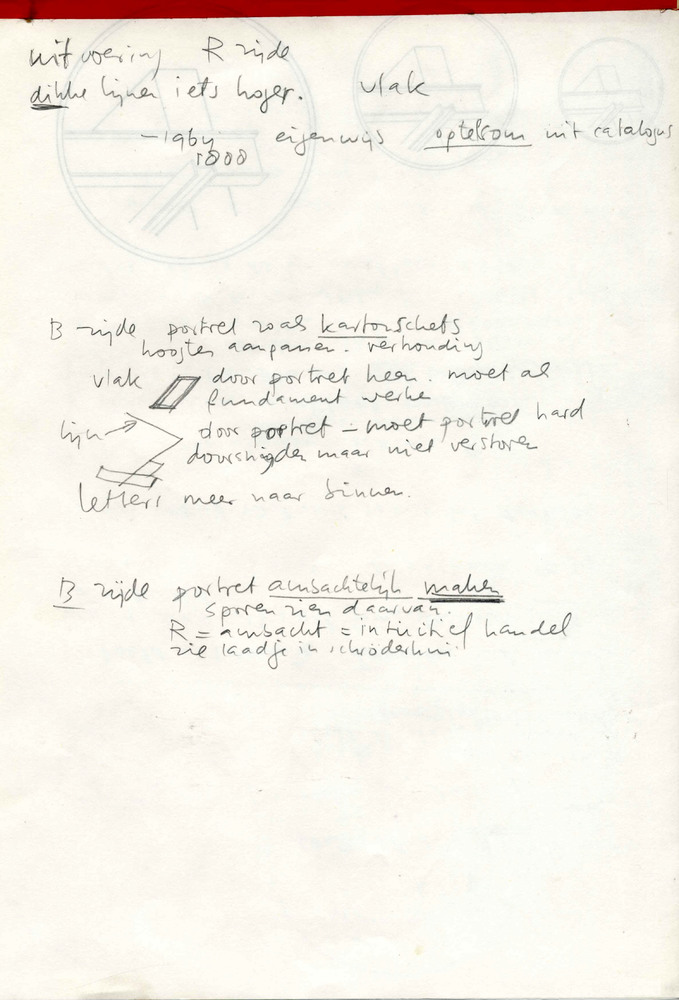 uitvoering R zijde
dikke lijnen iets hoger. vlak
-1964 eigenwijs optelsom uit catalogus
1888
B zijde portret zoals kartonschets
hoogten aanpassen. verhouding
vlak door portret heen. moet als
fundament werke
lijn door portret - moet portret hard
doorsnijden maar niet verstoren
letters meer naar binnen.
B zijde portret ambachtelijk maken
sporen zien daarvan.
R = ambacht = intuïtief handel
zie laadje in schröderhuis